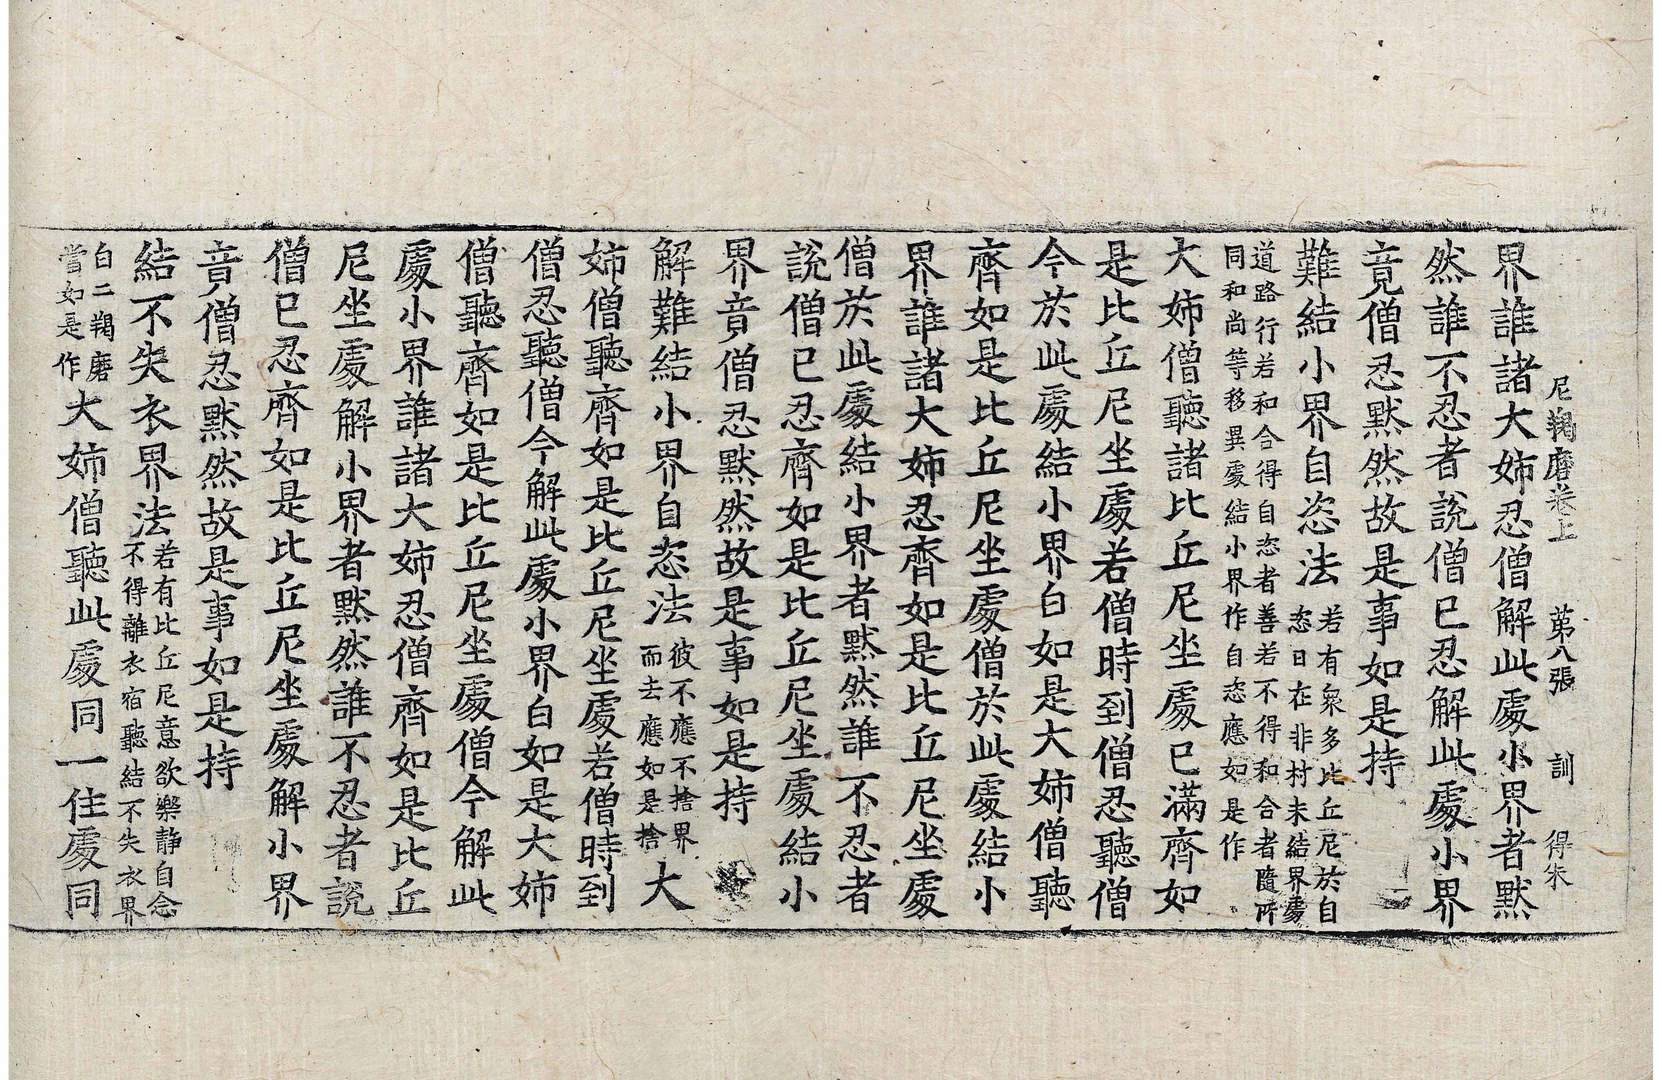 尼羯磨卷上 第八張 訓 得朱
界誰諸大姉忍僧解此處小界者默
然誰不忍者說僧已忍解此處小界
竟僧忍默然故是事如是持
難結小界自恣法若有衆多比丘尼於自
恣日在非村未結界處
道路行若和合得自恣者善若不得和合者隨所
同和尚等移異處結小界作自恣應如是作
大姉僧聽諸比丘尼坐處已滿齊如
是比丘尼坐處若僧時到僧忍聽僧
今於此處結小界白如是大姉僧聽
齊如是比丘尼坐處僧於此處結小
界誰諸大姉忍齊如是比丘尼坐處
僧於此處結小界者默然誰不忍者
說僧已忍齊如是比丘尼坐處結小
界竟僧忍默然故是事如是持
解難結小界自恣法彼不應不捨界
而去應如是捨大
姉僧聽齊如是比丘尼坐處若僧時到
僧忍聽僧今解此處小界白如是大姉
僧聽齊如是比丘尼坐處僧今解此
處小界誰諸大姉忍僧齊如是比丘
尼坐處解小界者默然誰不忍者說
僧已忍齊如是比丘尼坐處解小界
竟僧忍默然故是事如是持
結不失衣界法若有比丘尼意欲樂靜自念
不得離衣宿聽結不失衣界
白二羯磨
當如是作大姉僧聽此處同一住處同